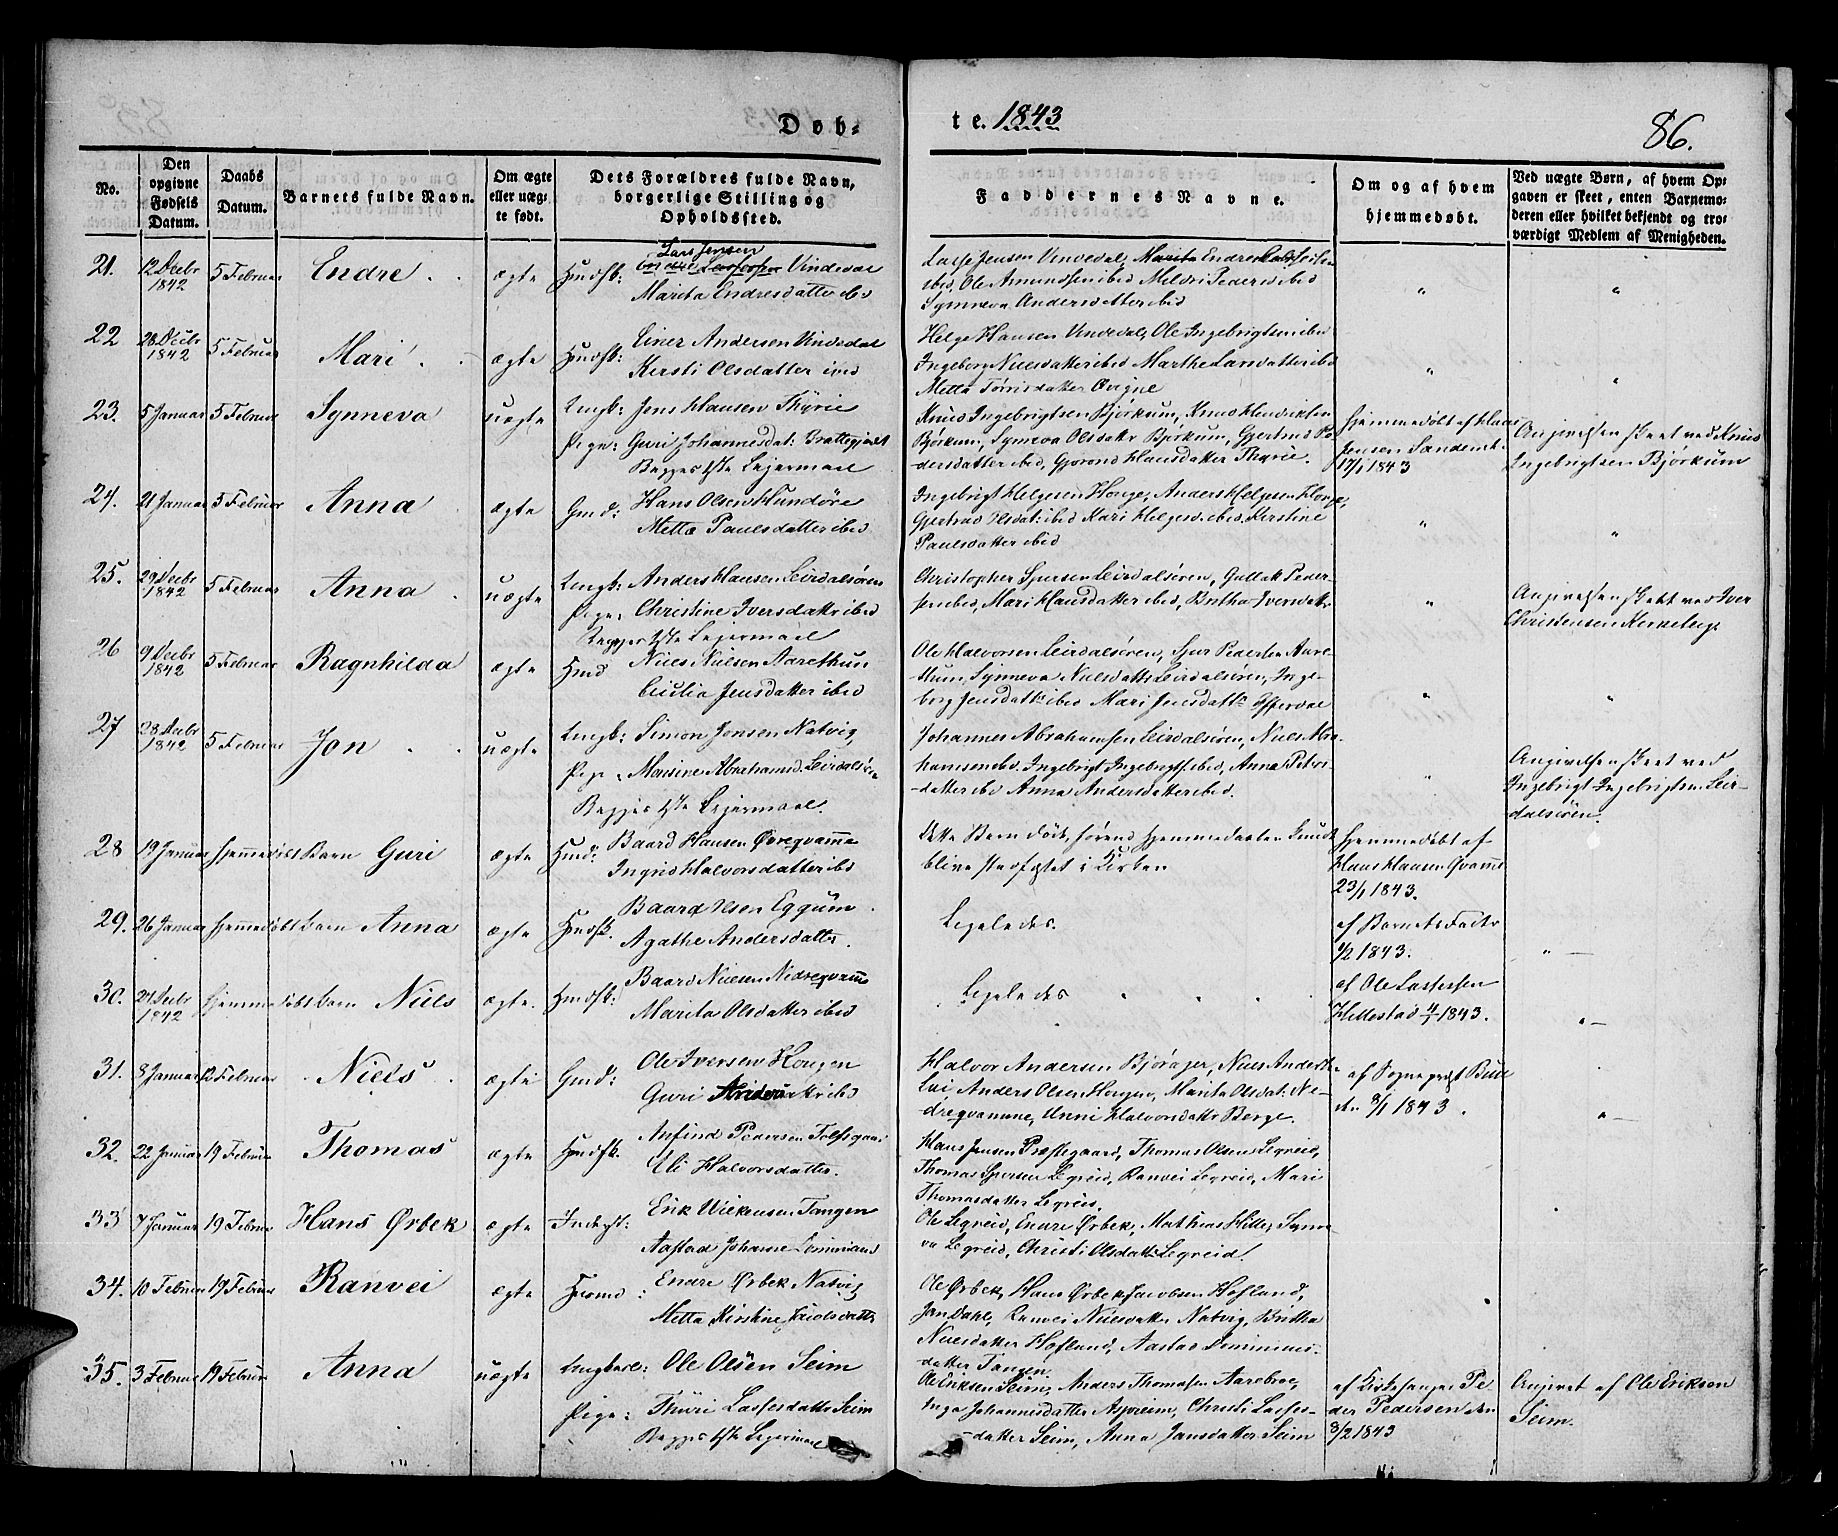 Døb-
te. 1843
86.
No.
Den opgivne Fødsels Datum.
Daabs Datum.
Barnets fulde Navn.
Om ægte eller uægte født.
Dets Forældres fulde Navn, borgerlige Stilling og Opholdssted.
Faddernes Navne.
Om og af hvem hjemmedøbt.
Ved uægte Børn, af hvem Opgaven er skeet, enten Barnemoderen eller hvilket bekjendt og troværdigt Medlem af Menigheden.
21. 12 Decbr 1842 5 Februar Endre ægte Huusf:
Lars Jensen
Vindedal
Marita Endresdatter ibid
Lasse Jensen Vindedal,
ibid, Ole Amundsen ibid Mildri Pedersd ibid
Synneva Andersdatter ibid
22 28 Decbr 1842 5 Februar Mari ægte Huusf:
Einer Andersen Vindedal
Kersti Olsdatter ibid
Helge Hansen Vindedal, Ole Ingebrigtsen ibid
Ingeborg Nielsdatter ibid Marthe Larsdatter ibid
Metta Torrisdatter
23. 5 Januar 5 Februar Synneva uægte
Ungk: Jens Hansen Thyrie
Pige: Guri Johannesdat: Brattegjerdt
Begges 1ste Lejermaal
Knud Ingebrigtsen Bjørkum, Knud Henriksen
Bjørkum, Synneva Olsdatr Bjørkum, Gjertrud Pe-
dersdatter ibid, Gjørond Hansdatter Thyrie.
Hjemmedøbt af Hans
Jensen
17/1 1843
Angivelsen skeet ved Knud
Ingebrigtsen Bjørkum
24. 21 Januar 5 Februar Anna ægte Gmd:
Hans Olsen Hundøre
Metta Paulsdatter ibid
Ingebrigt Helgesen Houge, Anders Helgesen Houge,
Gjertrud Olsdat: ibid Kari Helgesd. ibid, Kerstine
Paulsdatter ibid
25. 29 Decbr 1842 5 Februar Anna uægte
Ungk: Anders Hansen Leirdalsøren
Pige: Christine Iversdatter ibid
Begges 1ste Lejermaal
Christopher Sjursen Leirdalsøren, Gullak Peder-
sen ibid, Mari Hansdatter ibid, Britha Iversdatr
Angivelsen skeet ved Iver
Christensen Kirkeberge
26 9 Decbr 1842 5 Februar Ragnhilda ægte Hmd
Niels Nielsen Aarethun
Cicilia Jensdatter ibid
Ole Halvorsen Leirdalsøren, Sjur Pedersen Aare-
thun, Synneva Nielsdattr Leirdalsøren, Inge-
borg Jensdattr ibid Mari Jensdattr
27 28 Decbr 1842 5 Februar Jon uægte
Ungk: Simon Jonsen Natvig,
Pige: Marsine Abrahamsd. Leirdalsøren
Begges 1ste Lejermaal.
Johannes Abrahamsen Leirdalsøren, Niels Abra-
hamsen ibd. Ingebrigt Ingebrigts. ibid, Anna Peters-
datter ibid Anna Andersdatter ibid.
Angivelsen skeet ved
Ingebrigt Ingebrigtsen Leir-
dalsøren.
28 19 Januar Hjemmedøbt Barn Guri ægte Hmd:
Baard Hansen Øvregvamme
Ingrid Halvorsdatter ibid
Dette Barn døde, førend Hjemmedaaben kunde
blive stadfæstet i Kirken
Hjemmedøbt af
Hans Hansen Qvamme
23/1 1843.
29. 26 Januar Hjemmedøbt Barn Anna ægte Huusf.
Baard Olsen Eggum
Agathe Andersdatter.
Ligeledes.
af Barnets Fader
1/2 1843.
30. 27 Decbr 1842 Hjemmedøbt Barn Niels ægte Huusf:
Baard Nielsen Nedreqvamme
Marita Olsdatter ibid
Ligeledes
af Ole Lassesen
Hillestad 4/1 1843.
31. 8 Januar 12 Februar Niels ægte Gmd:
Ole Iversen Hougen
Guri
Halvor Andersen Bjøråger, Niels Anders
Lai, Anders Olsen Hougen, Marita Olsdat: Ne-
dreqvamme, Unni Halvorsdatr Berge.
af Sognepræst
den 8/1 1843.
32. 22 Januar 19 Februar Thomas ægte Huusf.
Anfind Pedersen
Eli Halvorsdatter.
Hans Jensen Præstegaard, Thomas Olsen Legreid,
Thomas Sjursen Legreid, Ranvei Legreid, Mari
Thomasdatter Legreid.
33 7 Januar 19 Februar Hans Ørbek ægte Inderst:
Erik Wickensen Tangen
Aastad Johanne
Ole Legreid, Endre Ørbek, Mathias Hille, Synne-
va Legreid, Christi Olsdattr Legreid.
34. 10 Februar 19 Februar Ranvei ægte
Endre Ørbek Natvig
Metta Kirstine
Ole Ørbek, Hans Ørbek, Jacobsen Hofland,
Jan Dahl, Ranvei Nielsdatter Natvig, Britha
Nielsdatter Hofland, Aastad
datter Tangen
35. 3 Februar 19 Februar Anna uægte
Ungkarl: Ole Olsen Seim
Pige: Thuri Lassesdattr Seim
Begges 1ste Lejermaal
Ole Eriksen Seim, Anders Thomasen Aarebroe,
Inga Johannesdatter Asperim, Christi Lasses-
datter Seim, Anna Jansdatter Seim
af Kirkesanger Pe-
der Pedersen den
8/2 1843
Angivet af Ole Erikson
Seim.